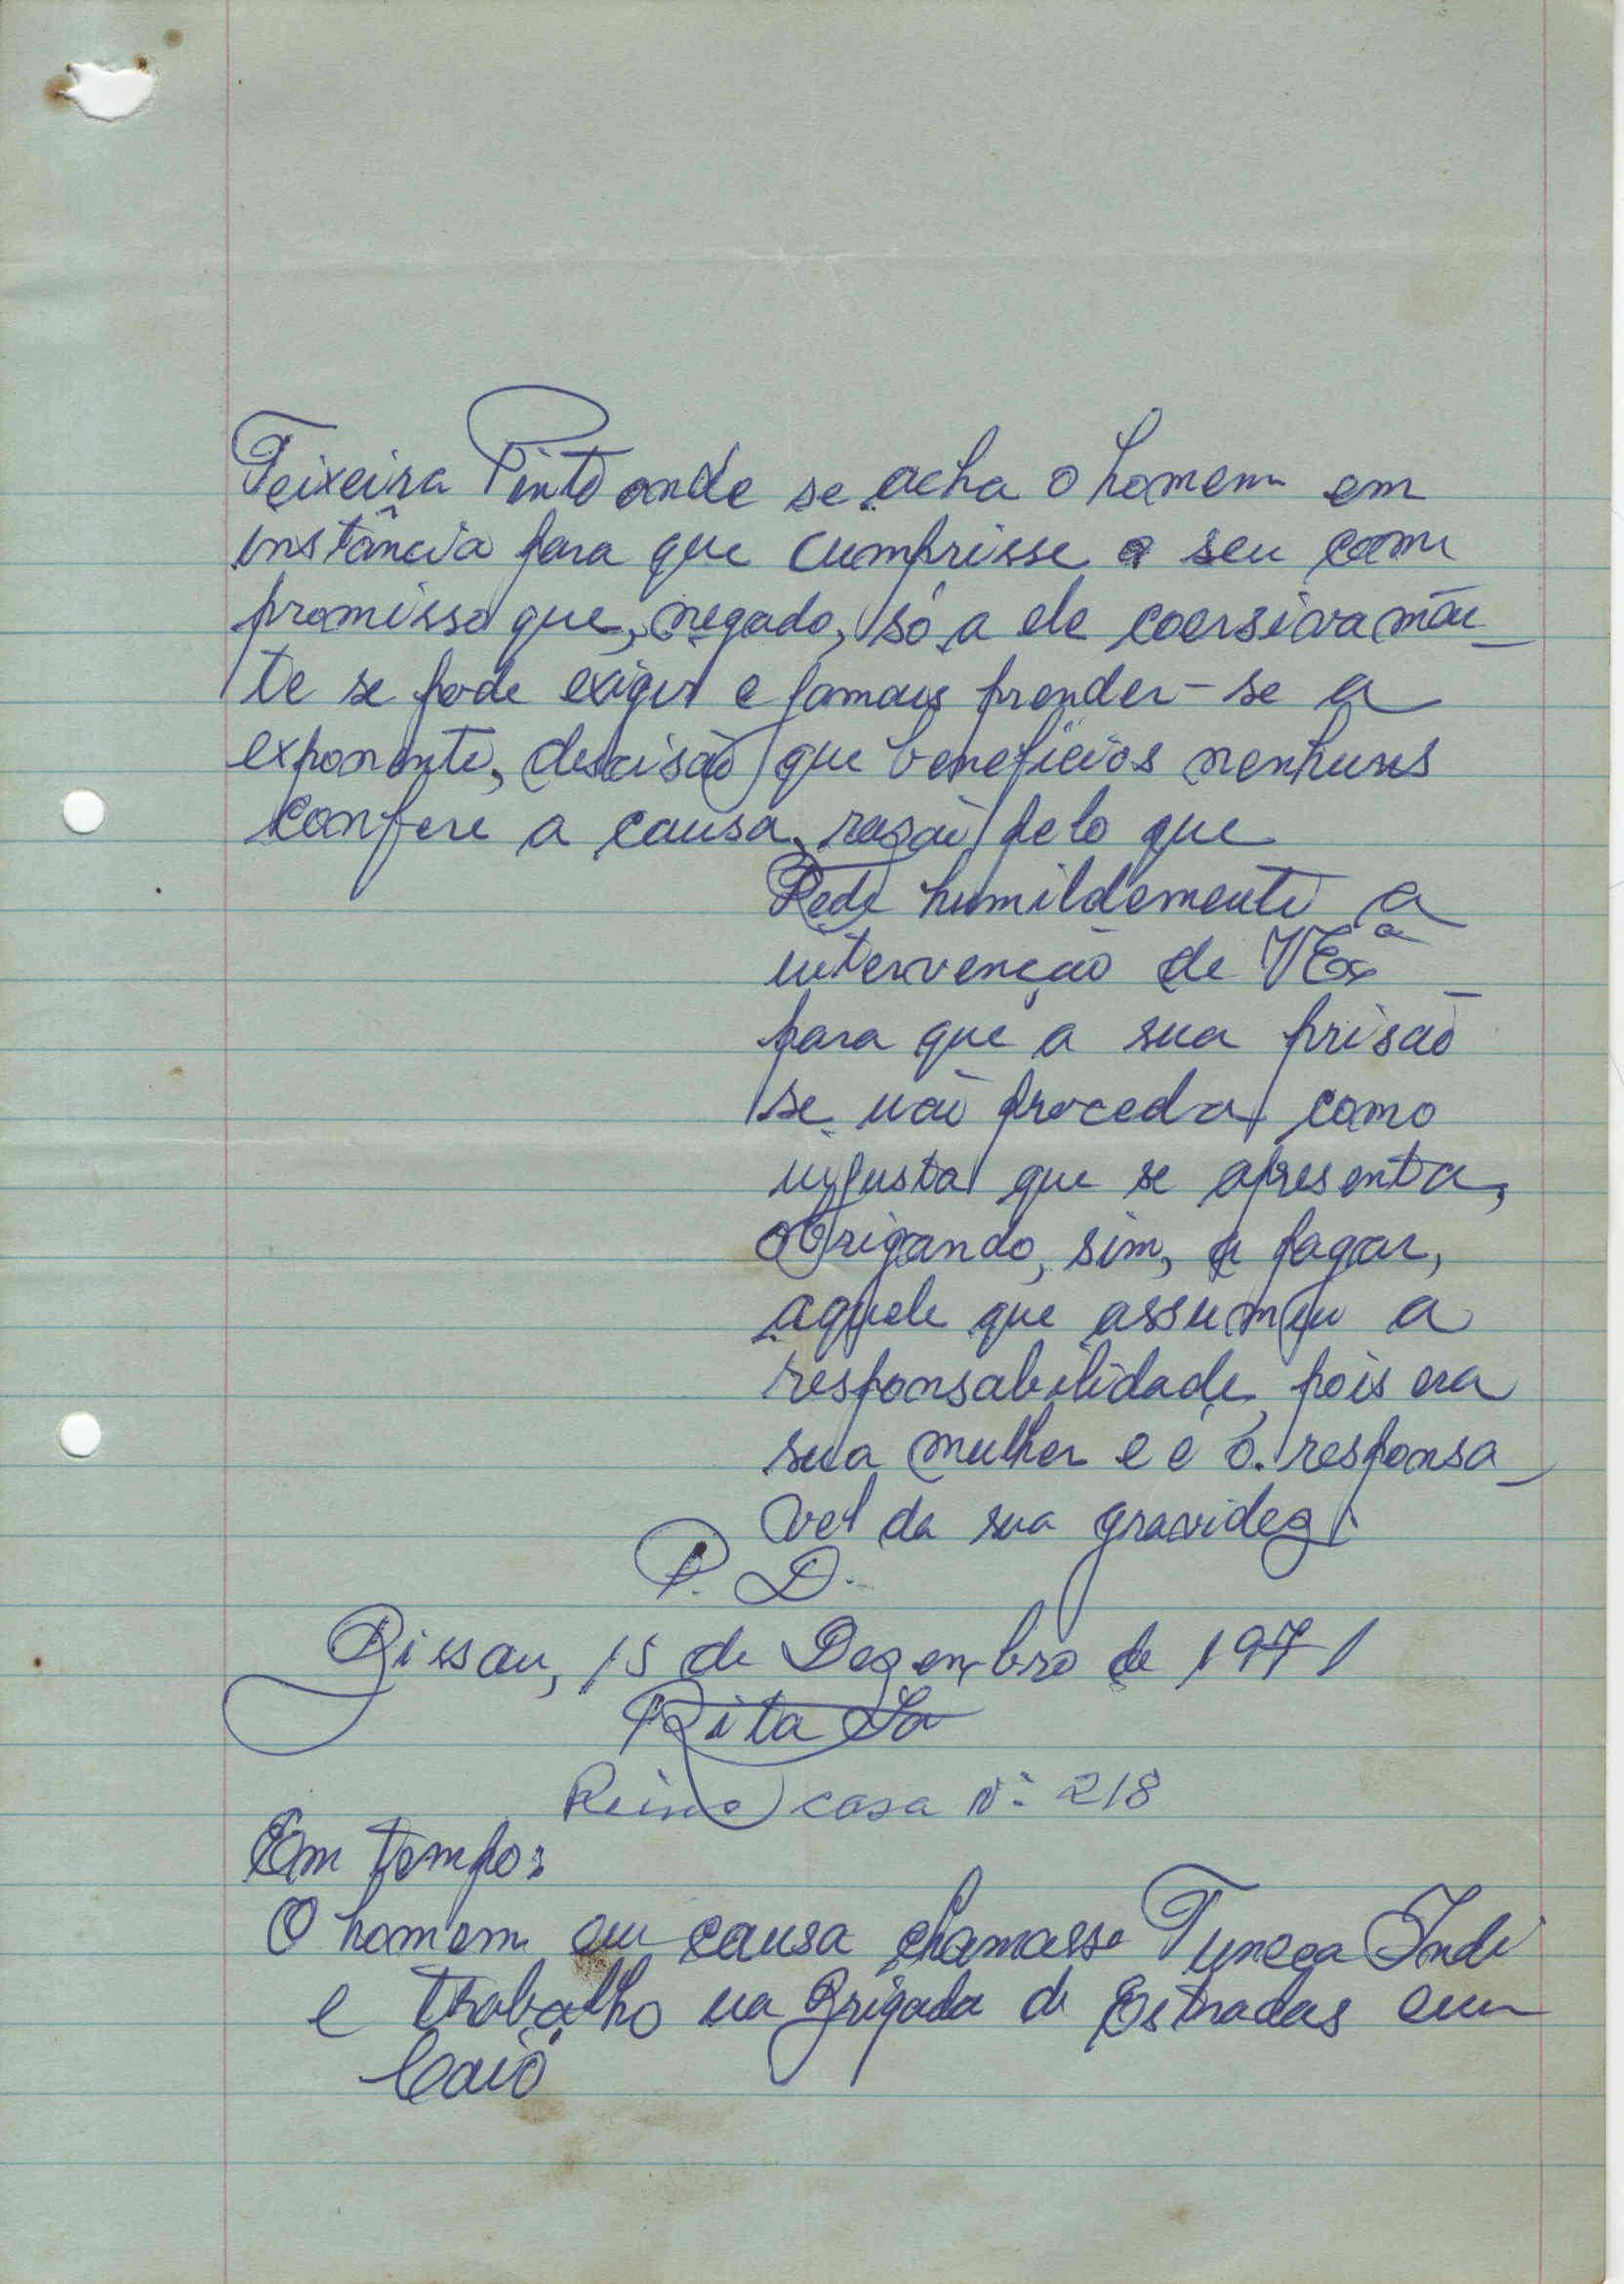 Teixeira Pinto onde se acha o homem em
instância para que cumprisse o seu com
promisso que, negado, só a ele coersivamẽn-
te se pode exigir e jamais prender-se a
exponente, descisão que beneficios nenhuns
confere a causa, razão pelo que
Pede humildemente a
intervenção de VExª
para que a sua prisão
se não proceda como
injusta que se apresenta,
obrigando, sim, a pagar,
aquele que assumiu a
responsabilidade, pois era
sua mulher e é o responsa-
vel da sua gravidez.
P. D.
Bissau, 15 de Dezembro de 1971
Rita Sá
Reino casa Nº 218
Em tempo:
O homem em causa chamasse Tuneca Indi
e trabalho na Brigada de Estradas em
Caió